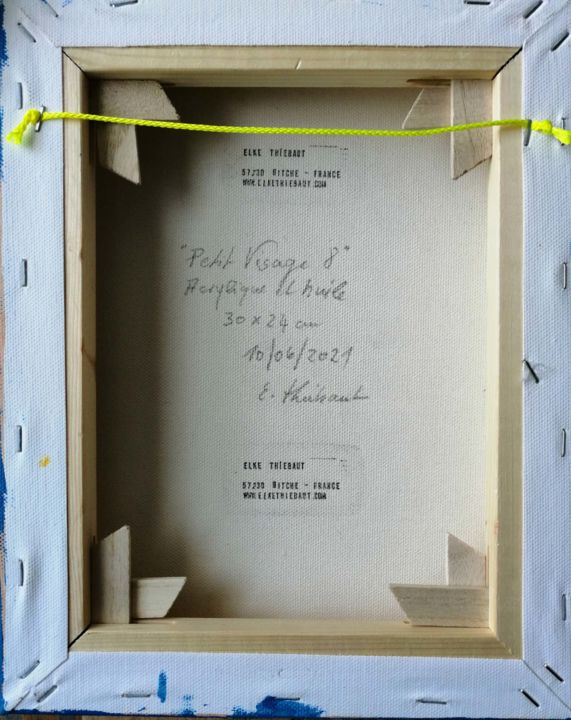 ELKE THIEBAUT
57230 BITCHE - FRANCE
WWW.ELKETHIEBAUT.COM
"Petit Visage 8"
Acrylique et huile
30 x 24 cm
10/06/2021
E. Thiebaut
ELKE THIEBAUT
57230 BITCHE - FRANCE
WWW.ELKETHIEBAUT.COM